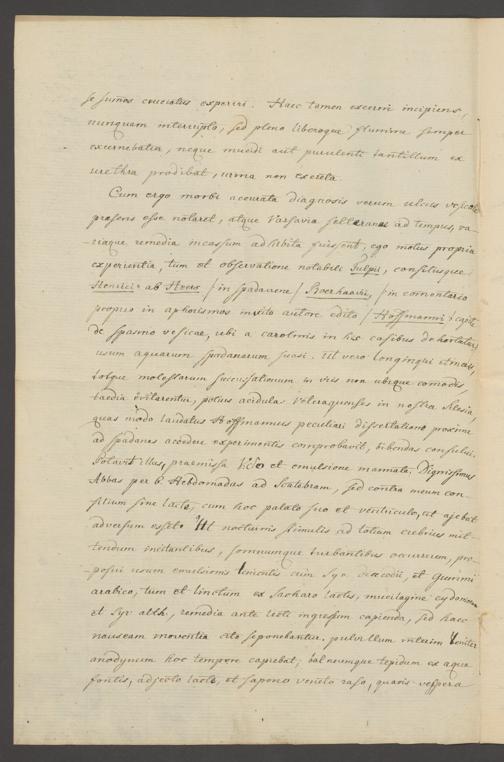 se summos cruciatus experiri. Haec tamen excerni incipiens,
nunquam interrupto, sed pleno liberoque flumine semper
excernebatur, neque mucidi aut purulenti tantillum ex
urethra prodibat, urina non excreta.
Cum ergo morbi accurata diagnosis verum ulcus vesicae
praesens esse notaret, atque Varsavia ad tempus, va-
riaque remedia incassum adhibita fuissent, ego motus propria
experientia, tum et observatione notabili Tulpii, consiliisque
Henrici ab Heers /in spadacrene/ Boerhaavii, /in comentario
proprio in aphorismos invito autore edito/ Hoffmanni
de spasmo vesicae, ubi a carolinis in his casibus dehortatur
usum aquarum spadanarum suasi. Ut vero longinqui itineris,
totque molestarum succussationum in viis non ubique comodis
taedia evitarentur, potius acidulas in nostra Silesia,
quas modo laudatus Hoffmannus peculiari dissertatione proxime
ad spadanas accedere experimentis comprobavit, bibendas consului.
praemissa et emulsione mannata. Dignissimus
Abbas per 6 Hebdomadas ad Scatebram, sed contra meum con-
silium sine lacte, cum hoc palato suo et ventriculo, ut ajebat
adversum esset. Ut nocturnis stimulis ad lotium crebrius mit-
tendum incitantibus, somnumque turbantibus occurrerem, pro-
posui usum emulsionis cum Syr. et Gummi
arabico, tum et linctum ex Sacharo lactis, mucilagine cydoniorum
et Syr alth., remedia ante lecti ingressum capienda, sed haec
nauseam moventia cito seponebantur. pulvillum interim leniter
anodynum hoc tempore capiebat; balneumque tepidum ex aqua
fontis, adjecto lacte, et sapone veneto raso, quavis vespera